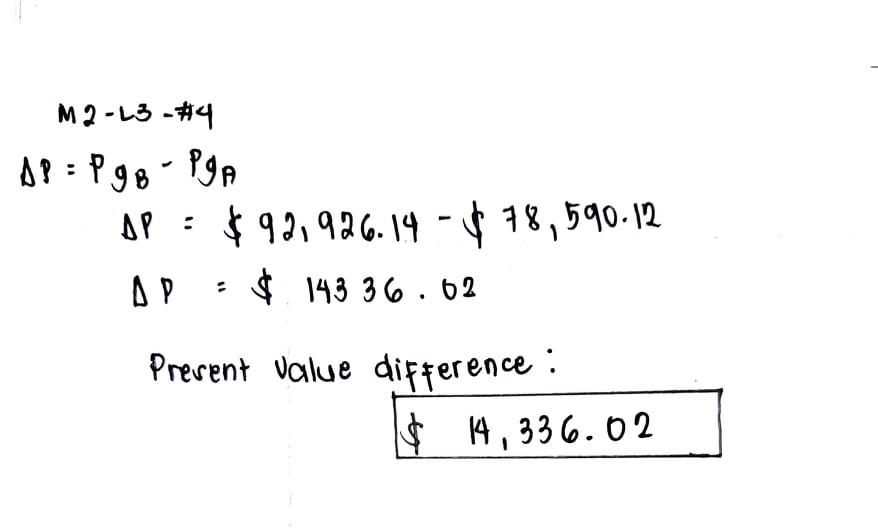 M2-L3-#4
ΔP = PgB - PgA
ΔP = $ 92,926.14 - $ 78,590.12
ΔP = $ 14336.02
Present value difference:
$ 14,336.02